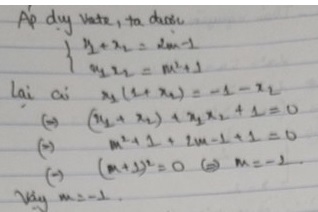 Áp dụng Viete, ta được
{ x₁ + x₂ = 2m-1
x₁x₂ = m²+1
Lại có x₁(1+x₂) = -1 - x₂
(=) (x₁ + x₂) + x₁x₂ + 1 = 0
(=) m² + 1 + 2m - 1 + 1 = 0
(=) (m+1)² = 0 (=) m = -1.
Vậy m = -1.